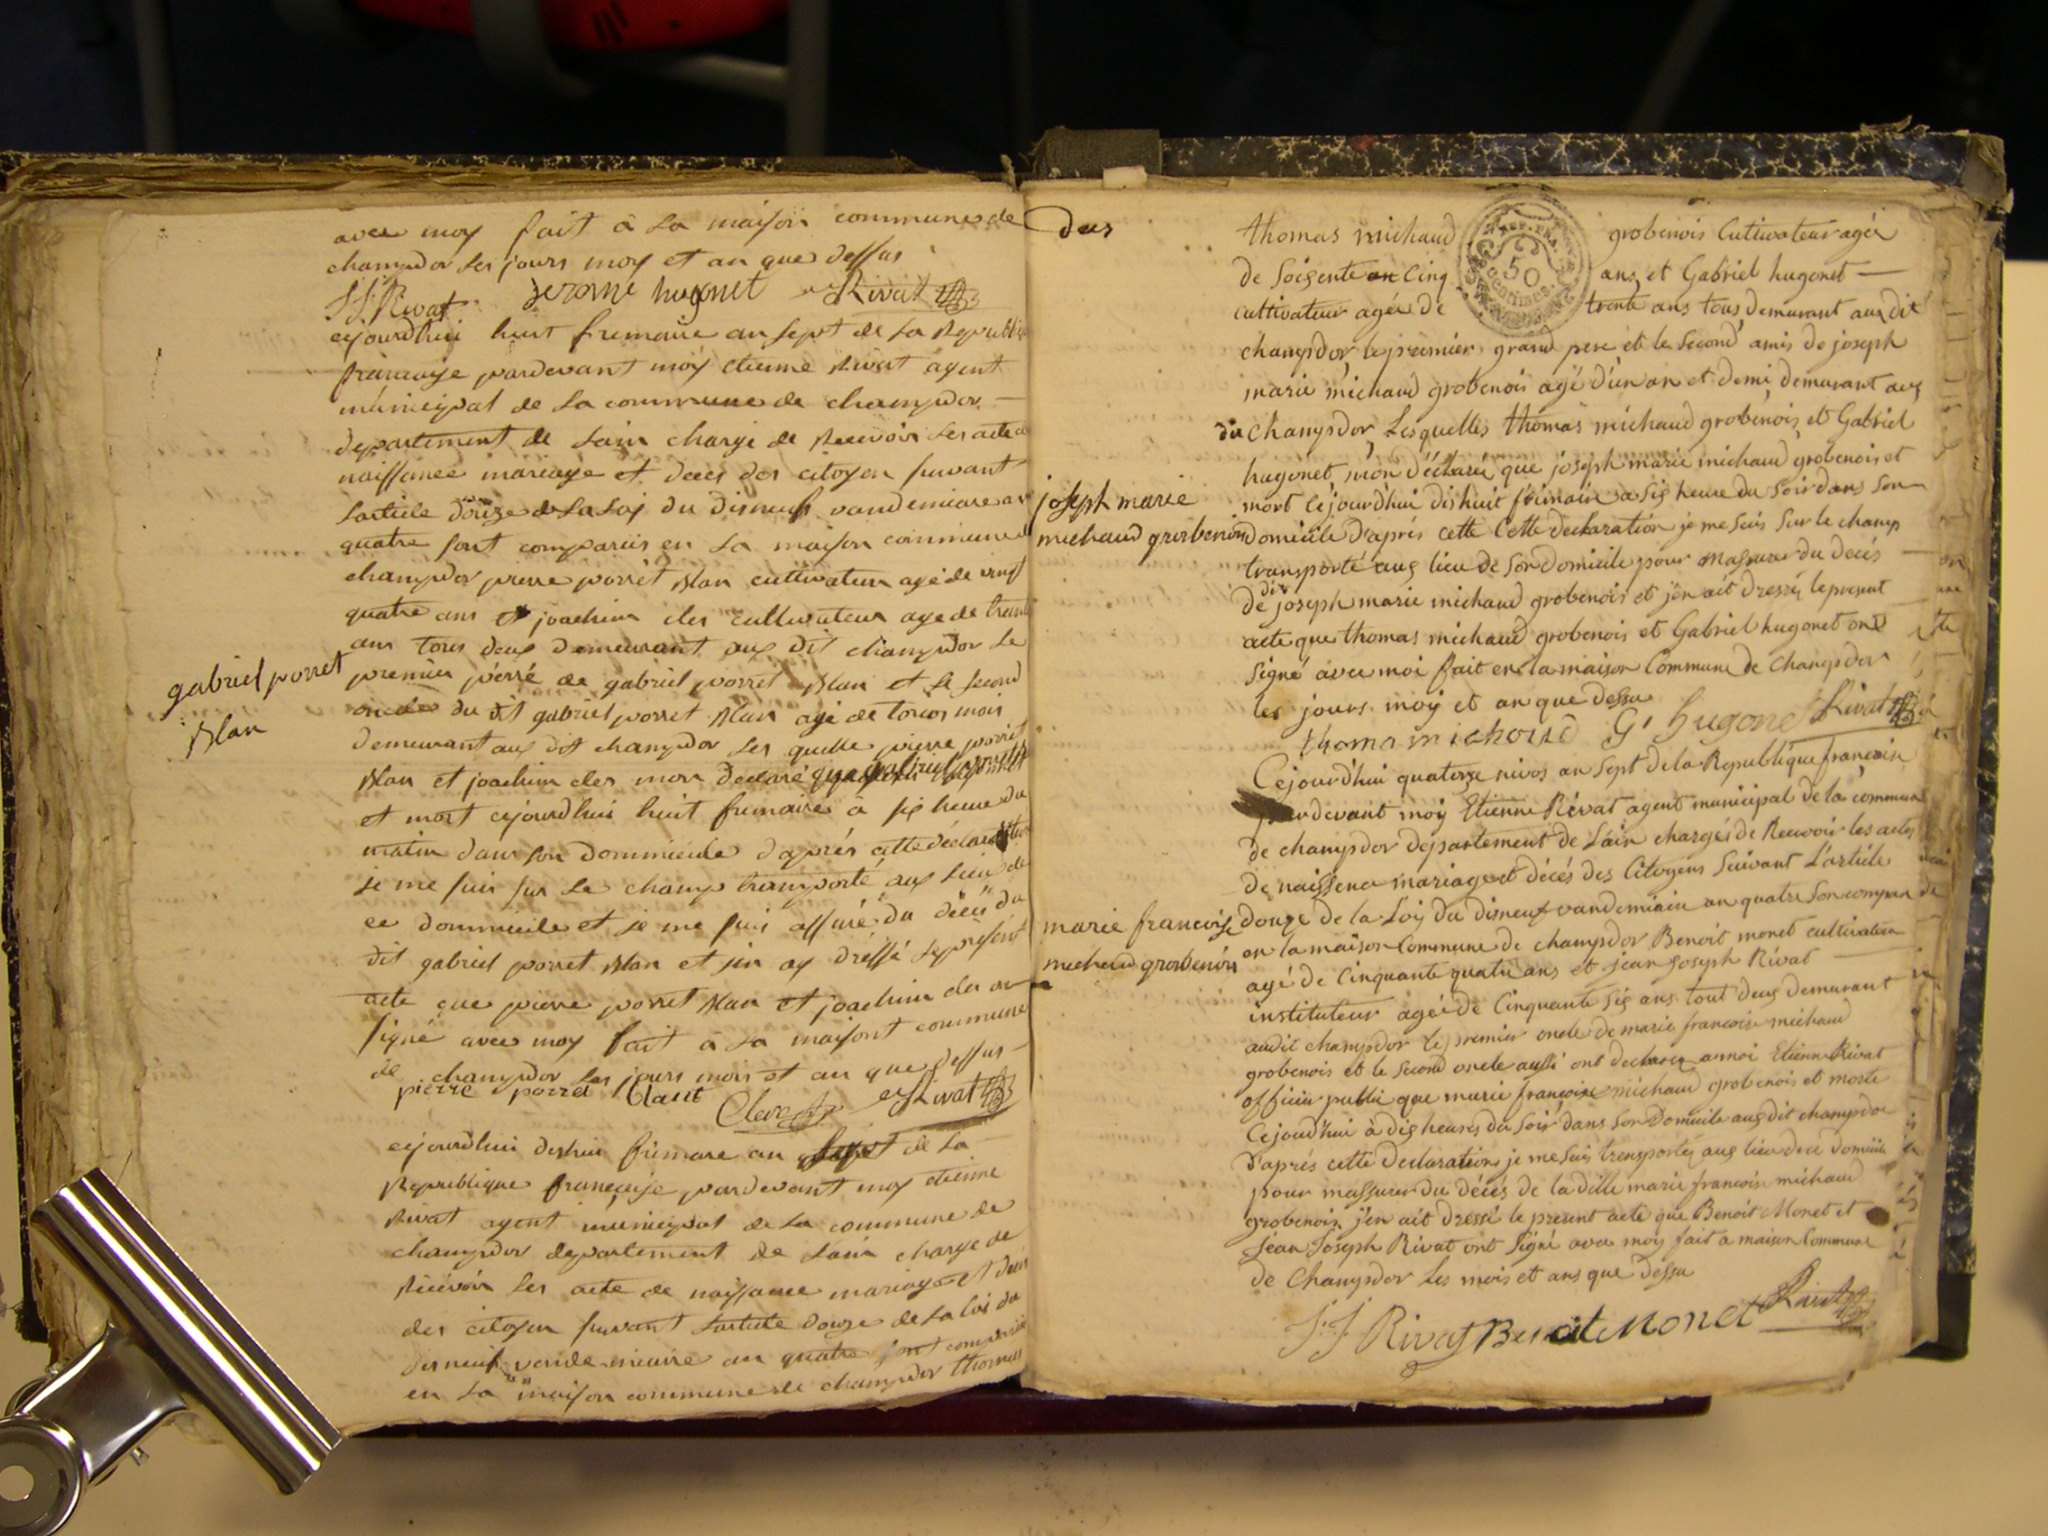 avec moy fait à la maison commune de
champdor les jours moy et an que dessus
J J Rivat jerome hugonet e Rivat
cejourdhui huit frimaire an sept de la Republi
francaise pardevant moy etienne Rivat agent
municipal de la commune de champdor
departement de lain charge de Recevoir les acte d
naissance mariage et deces des citoyen suivant
larticle douze de la loy du disneuf vandemiaire an
quatre sont comparus en la maison commune d
champdor pierre porret blan cultivateur age de vingt
quatre ans et joachim cler cultivateur age de trante
ans tous deux demeurant aux dit champdor le
premier pérre de gabriel porret blan et le second
oncle du dit gabriel porret blan age de mois
gabriel porret
blan
demeurant aux dit champdor les quelle pierre porret
blan et joachim cler mon declaré que gabriel porret
et mort cejourdhui huit frimaire à six heure du
matin dans son dommicile daprés cette déclaration
je me suis sur le champ transporté aux lieu de
ce dommicile et je me suis assuré du décé du
dit gabriel porret blan et jen ay dréssé le présent
acte que pierre porret blan et joachim cler on
signé avec moy fait à la maisont commune
de champdor les jours mois et an que dessus
pierre porret blant Clere e Rivat
cejourdhui dishui frimare an sept de la
Republique françaije pardevant moy etienne
Rivat agent municipal de la commune de
champdor departement de lain charge de
Recevoir les acte de naissance mariage et décés
des citoyen suvant larticle douze de la loi du
disneuf vendemiaire an quatre sont comparus
en la maison commune de champdor thomas
thomas michaud grobenois Cultivateur agée
de Soisente cinq ans et Gabriel hugonet
cultivateur agée de trente ans tous demurant au dit
champdor le premier grand pere et le second amis de joseph
marie michaud grobenois agé d'un an et demi demurant aux
dit champdor Lesquelles thomas michaud grobenois et Gabriel
hugonet, m'on déclaré que joseph marie michaud grobenois et
joseph marie
michaud grosbenois
mort cejourd'hui dishuit frimaire a six heure du soir dans son
domicile d'aprés cette Cette declaration je me suis sur le champ
transporté aux lieu de son domicile pour massurer du decés
de dit joseph marie michaud grobenois et j'en ait dressé le present
acte que thomas michaud grobenois et Gabriel hugonet ont
signé avec moi fait en la maison Commune de Champdor
les jours moy et an que dessu
thoma michoud G hugonet Rivat
Cejourd'hui quatorze nivos an sept de la Republique francain
pardevant moy Etienne Rivat agent municipal de la commun
de champdor departement de Lain chargés de Recevoir les actes
de naissence mariage et décés des Citoyens Suivant L'article
marie francoise
michaud grosbenois
douze de la Loy du disneuf vandemiain an quatre Son comparu
en la maison Commune de champdor Benoit monet cultivateur
agé de Cinquante quatre ans et jean joseph Rivat
instituteur agée de Cinquante Six ans tout deux demurant
audit champdor le premier oncle de marie francoise michaud
grobenois et le Second oncle aussi ont declarer a moi Etienne Rivat
officier public que marie françoise michaud grobenois et morte
Cejourd'hui à dix heures du Soir dans son Domicile aux dit champdor
D'aprés cette declaration je me suis transportéz aux lieu de ce domicile
pour massurer du décés de la dille marie francois michaud
grobenois j'en ait dressé le present acte que Benoit Monet et
Jean Joseph Rivat ont Signé avec moy fait a maison Commune
de Champdor Les mois et ans que dessu
J J Rivat Benoit Monet Rivat